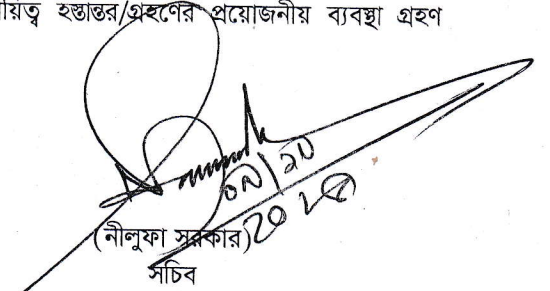 য়িত্ব হস্তান্তর/গ্রহণের প্রয়োজনীয় ব্যবস্থা গ্রহণ
(নীলুফা সরকার)
সচিব